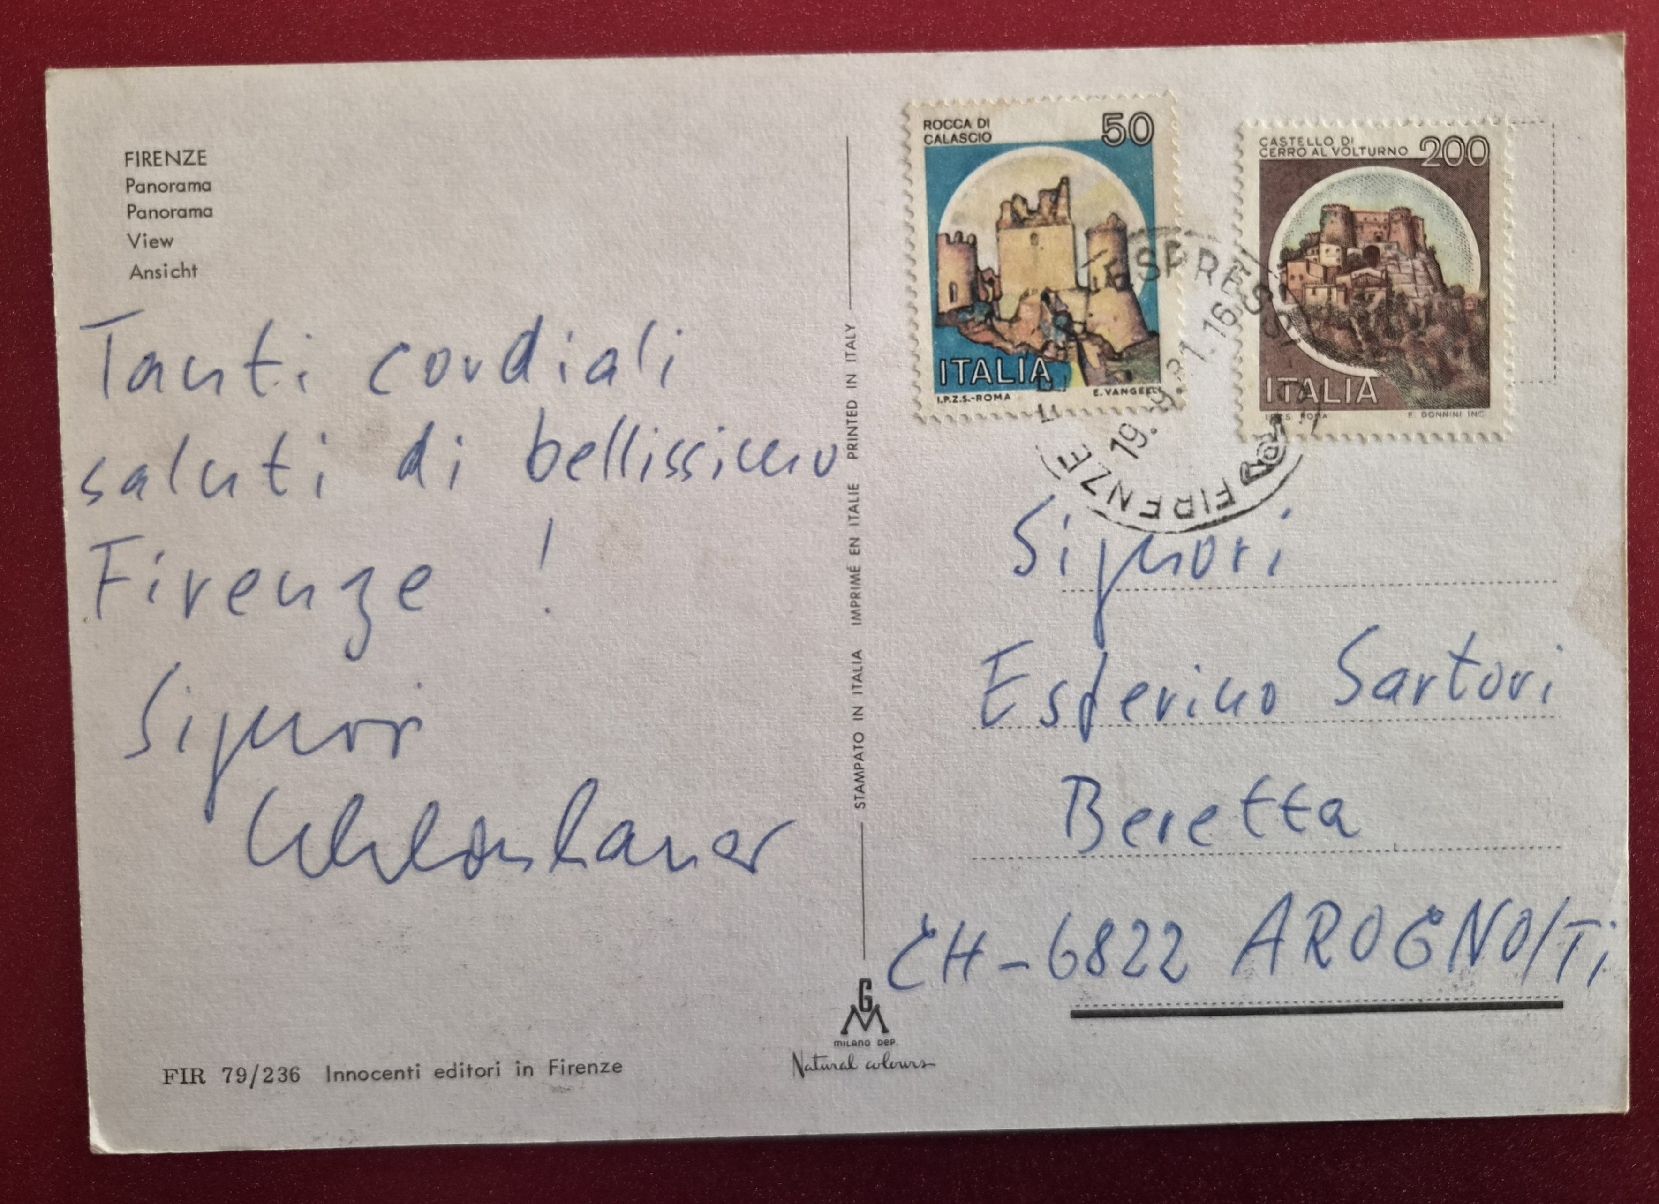 FIRENZE
Panorama
Panorama
View
Ansicht
Tanti cordiali
saluti di bellissimo
Firenze !
Signori
FIR 79/236 Innocenti editori in Firenze
STAMPATO IN ITALIA IMPRIMÉ EN ITALIE PRINTED IN ITALY
GM
MILANO DEP.
Natural colours
ROCCA DI
CALASCIO
50
ITALIA
I.P.Z.S.-ROMA E. VANGELLI
CASTELLO DI
CERRO AL VOLTURNO
200
ITALIA
I.P.Z.S. ROMA E. DONNINI INC.
ESPRESSI
FIRENZE
Signori
Esterino Sartori
Beretta
CH-6822 AROGNO/Ti